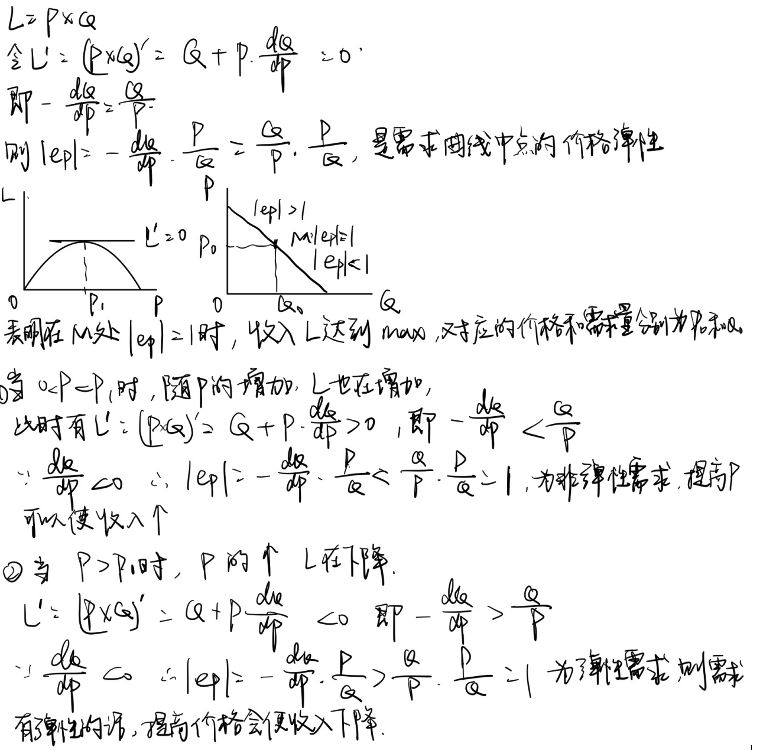 L = P×Q
令L' = (P×Q)' = Q + P·dQ/dP = 0
即 - dQ/dP = Q/P
则 |ep| = - dQ/dP · P/Q = Q/P · P/Q, 是需求曲线中点的价格弹性
L P
|ep|>1
L'=0 P₀ M |ep|=1
|ep|<1
0 P₁ P 0 Q₀ Q
表明在M处 |ep|=1时, 收入L达到max, 对应的价格和需求量分别为P₀和Q₀
①当 0<P<P₁时, 随P的增加, L也在增加,
此时有L' = (P×Q)' = Q + P·dQ/dP > 0, 即 - dQ/dP < Q/P
∵ dQ/dP <0 ∴ |ep| = - dQ/dP · P/Q < Q/P · P/Q = 1, 为非弹性需求, 提高P
可以使收入↑
② 当 P>P₁时, P的↑ L在下降.
L' = (P×Q)' = Q + P dQ/dP <0 即 - dQ/dP > Q/P
∵ dQ/dP <0 ∴ |ep| = - dQ/dP · P/Q > Q/P · P/Q = 1 为弹性需求, 则需求
有弹性的话, 提高价格会使收入下降.